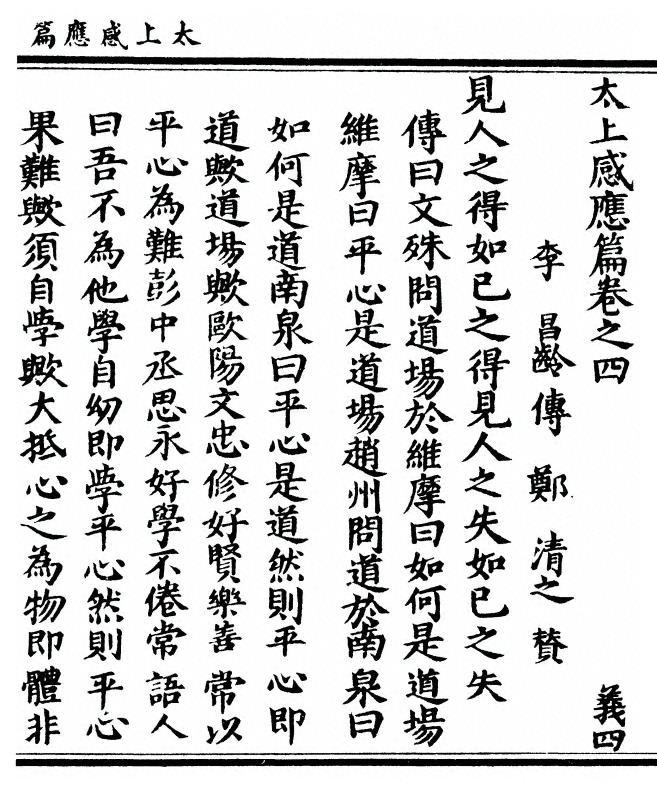 太上感應篇
太上感應篇卷之四 義四
李昌齡傳 鄭清之贊
見人之得如已之得見人之失如已之失
傳曰文殊問道場於維摩曰如何是道場
維摩曰平心是道場趙州問道於南泉曰
如何是道南泉曰平心是道然則平心即
道歟道場歟歐陽文忠修好賢樂善常以
平心為難彭中丞思永好學不倦常語人
曰吾不為他學自幼即學平心然則平心
果難歟須自學歟大抵心之為物即體非